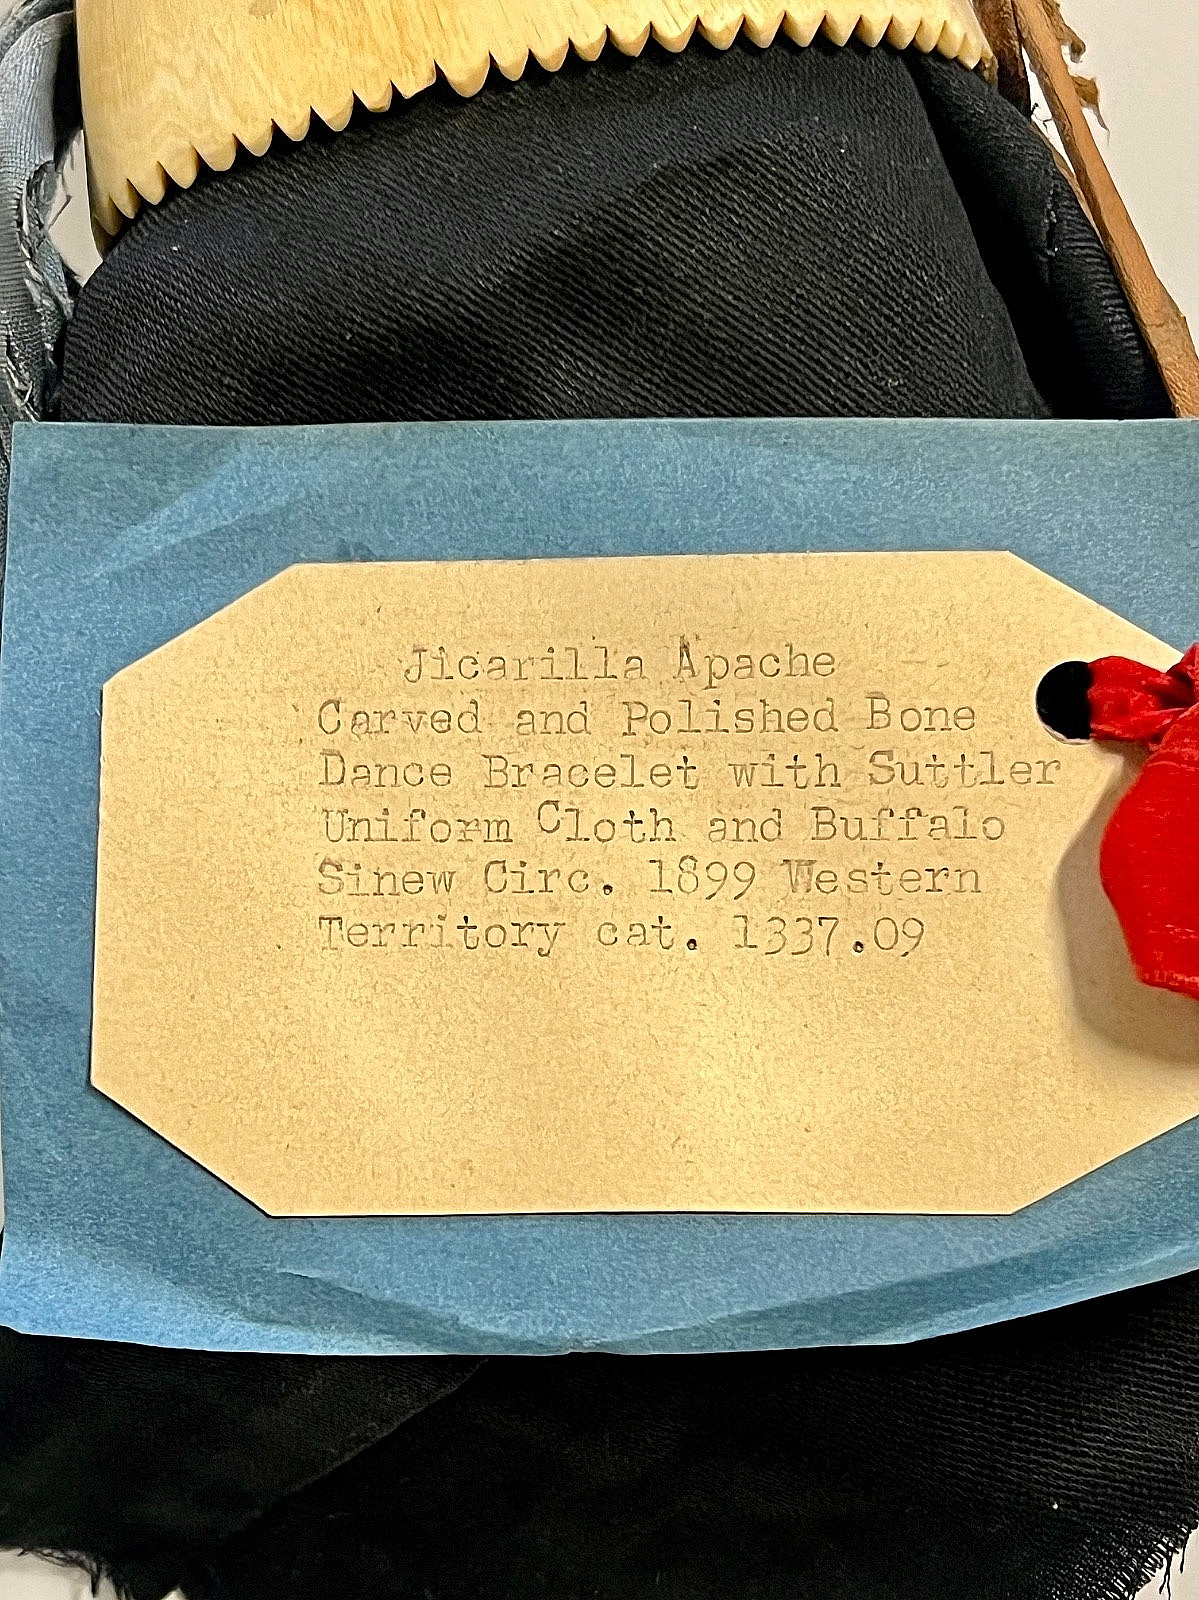 Jicarilla Apache
Carved and Polished Bone
Dance Bracelet with Suttler
Uniform Cloth and Buffalo
Sinew Circ. 1899 Western
Territory cat. 1337.09